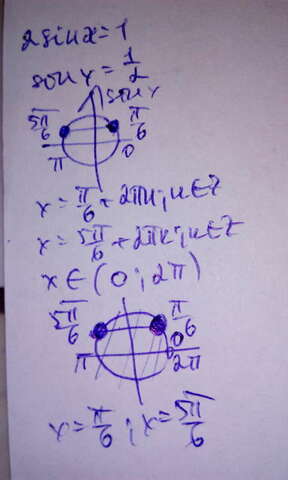 2sinx=1
sinx=1/2
sinx
5π/6 π/6
π 0
x=π/6+2πk; k∈Z
x=5π/6+2πk; k∈Z
x∈(0;2π)
5π/6 π/6
π 0
2π
x=π/6; x=5π/6